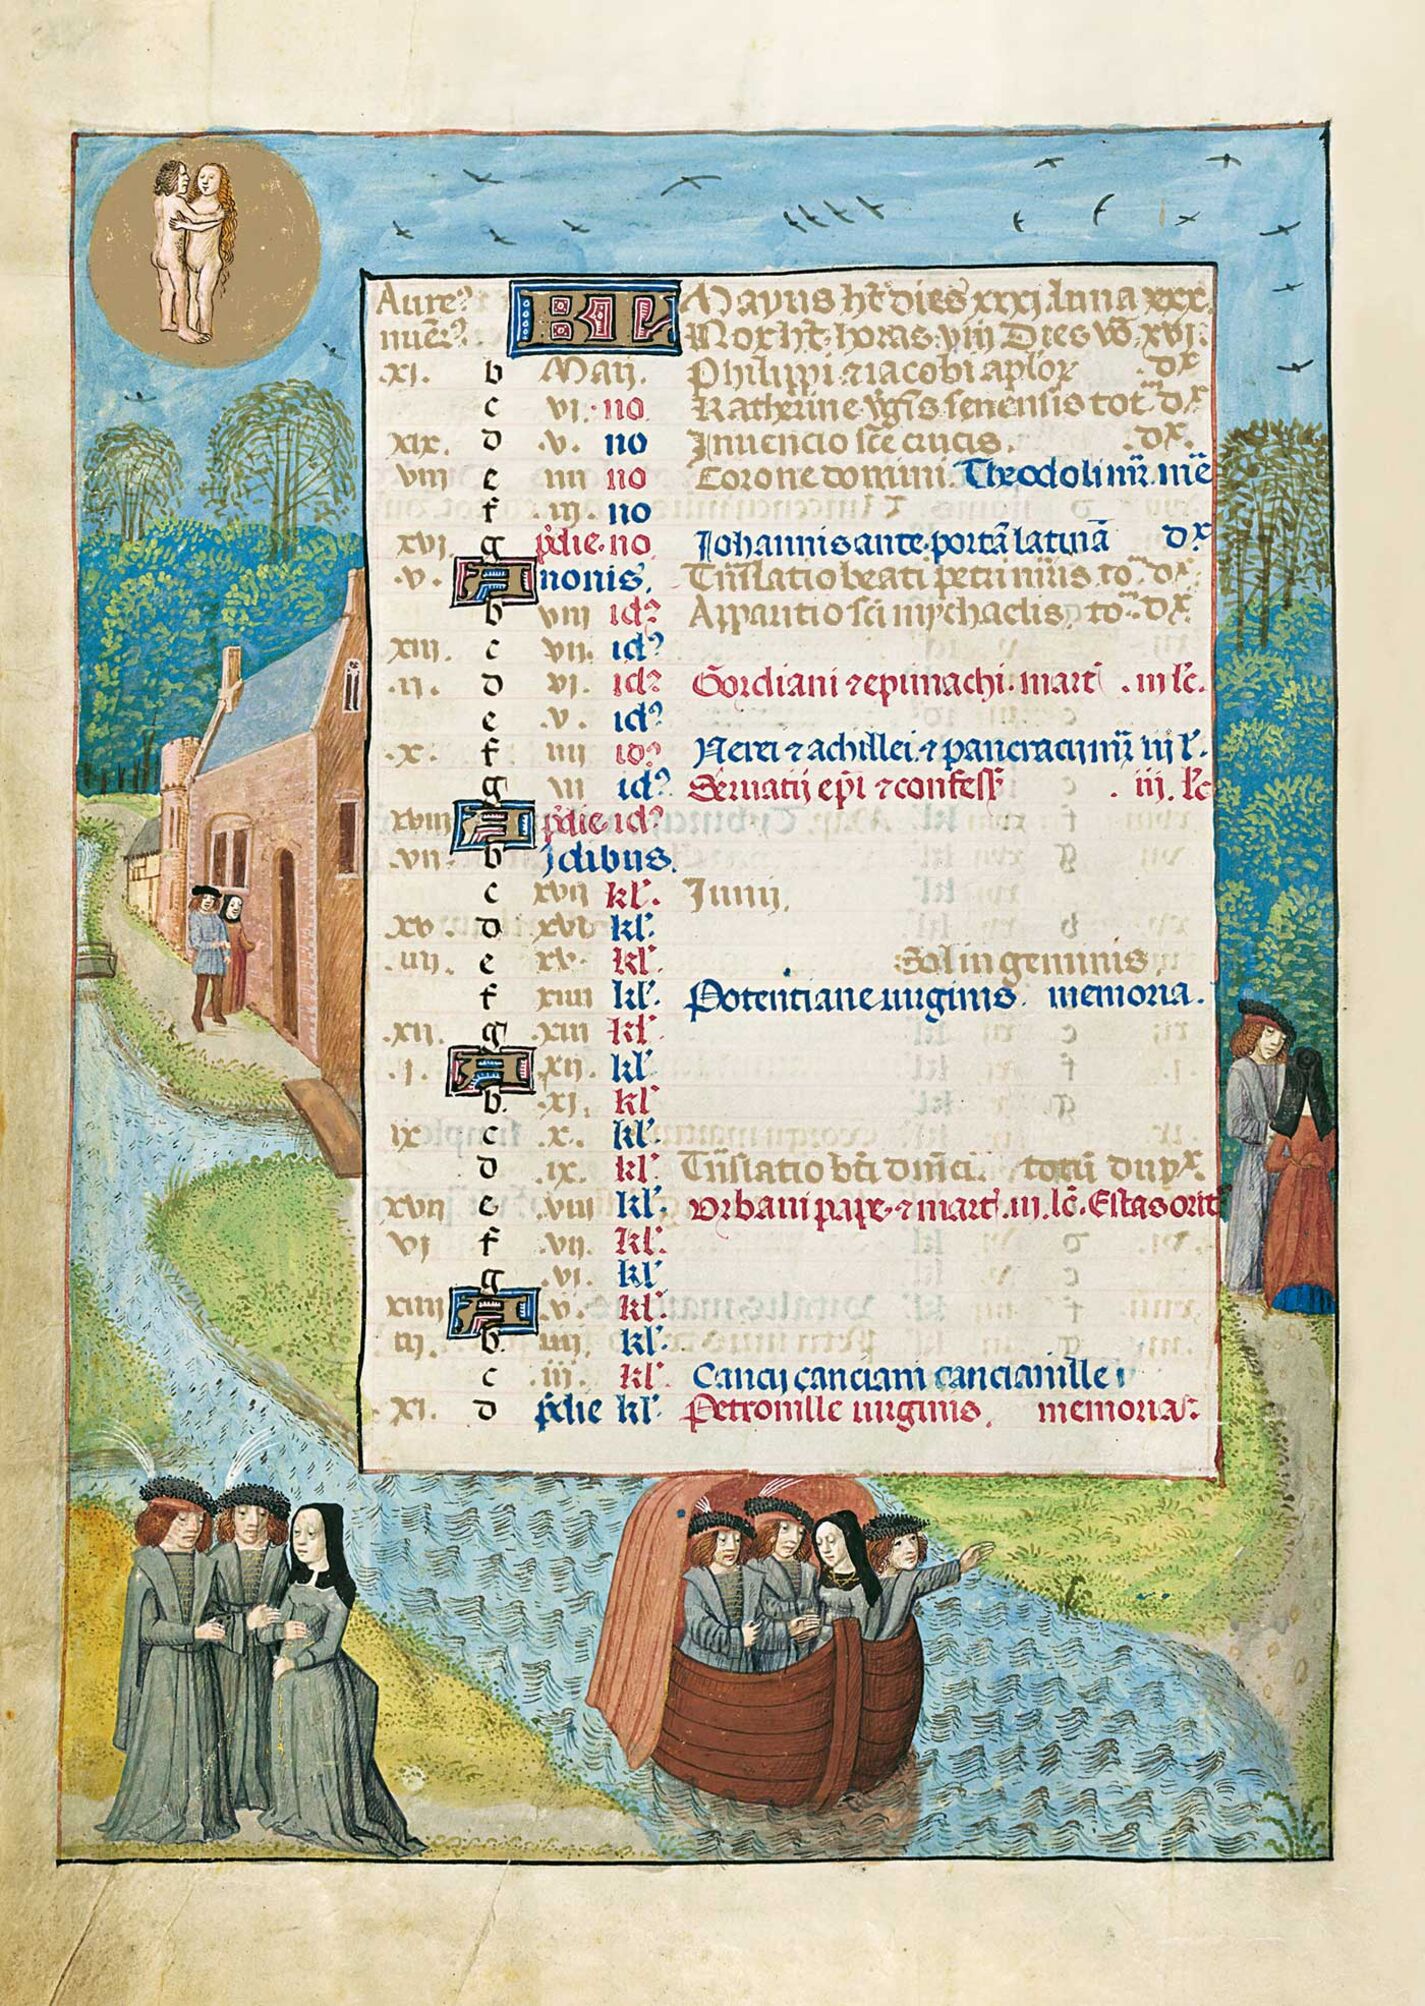 Aure⁹ KL Mayus ht dies xxxj luna xxx.
nuer⁹. Nox ht horas viij Dies vo xvj.
.xj. b Maij. Philippi ⁊ iacobi aplor .dx
c vi. no Katherine vgis senensis tot dx
xix. d .v. no Inuencio sce crucis. .dx.
viij e iiij no Corone domini. Theodoli mr. me
f .iij. no
xvj. g pdie. no Iohannis ante portā latinā dx
.v. A nonis. Trislatio beati petri mris to dx
b viij id⁹ Apparitio sci mychaelis, to dx
xiij. c vij. id⁹
.ij. d vj. id⁹ Gordiani ⁊ epimachi. mart .iij lc.
e .v. id⁹
.x. f iiij id⁹ Nerei ⁊ achillei ⁊ pancracij mr iij l.
g iij id⁹ Seruatij epi ⁊ confess . iij. lc
xviij A pdie id⁹
.vij. b jdibus.
c xvij kl. Iunij.
xv. d xvj kl.
.iiij. e xv. kl. Sol in geminis.
f xiiij kl. Potentiane uirginis. memoria.
.xij. g .xiij kl.
.j. A .xij. kl.
b. .xj. kl
ix c .x. kl.
d .ix. kl. Trislatio bti dnici. totū dupx
xvij e .viij kl. Urbani pape. ⁊ mart. iij. lc. Estas orit
vj f .vij. kl.
g .vj. kl
xiiij A .v. kl.
iij. b iiij. kl.
c .iij. kl. Cancij canciani cancianille
.xj. d pdie kl. Petronille uirginis. memoria.